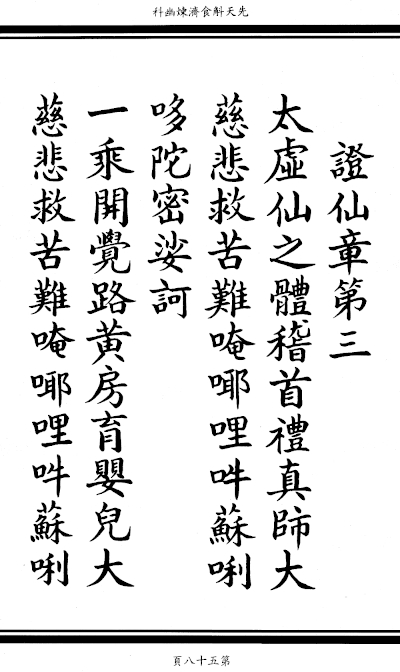 先天斛食濟煉幽科
證仙章第三
太虛仙之體稽首禮真師大
慈悲救苦難唵㖿哩吽蘇唎
哆陀密娑訶
一乘開覺路黃房育嬰兒大
慈悲救苦難唵㖿哩吽蘇唎
第五十八頁